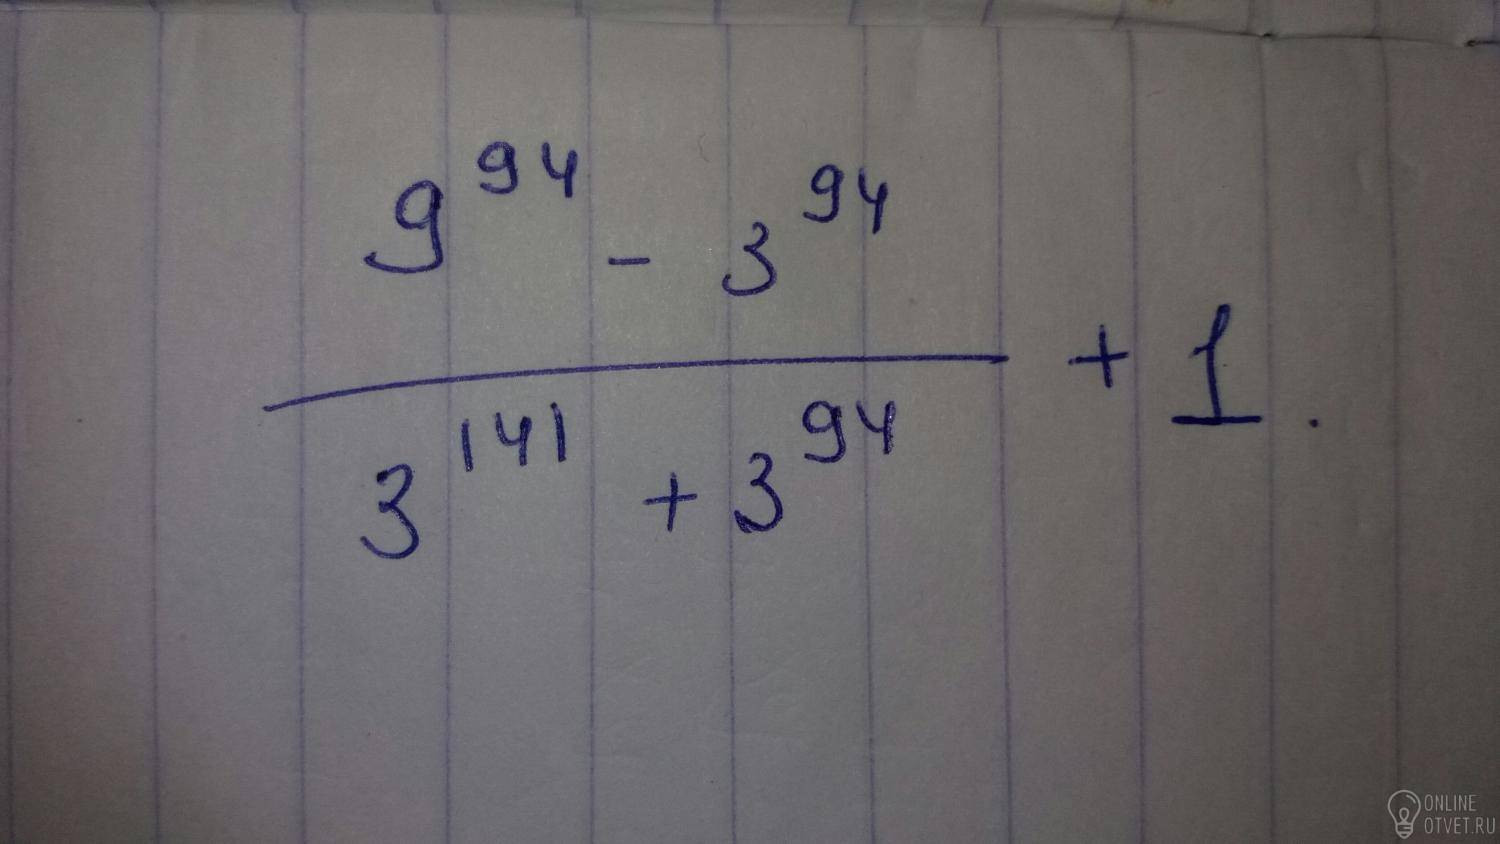 9^94 - 3^94
3^141 + 3^94
+ 1.
ONLINE
OTVET.RU